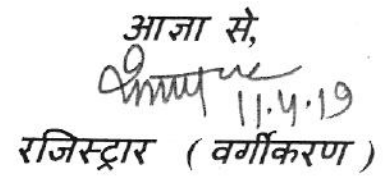 आज्ञा से,
11.4.19
रजिस्ट्रार ( वर्गीकरण )